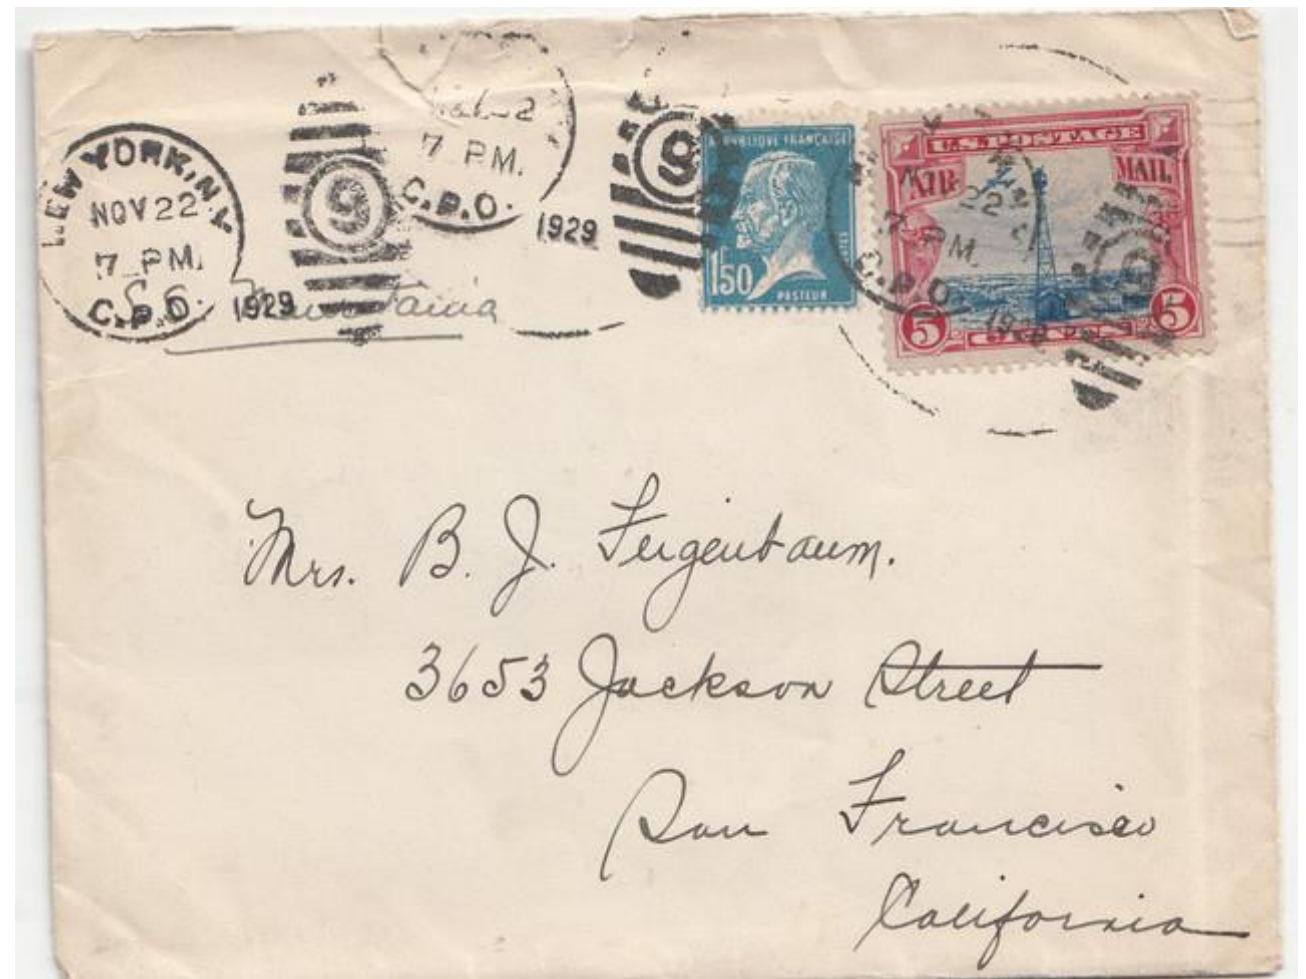 NEW YORK, N.Y.
NOV 22
7 PM.
C.P.O. 1929
9
7 PM.
C.P.O. 1929
9
REPUBLIQUE FRANÇAISE
1F50
PASTEUR
POSTES
U.S. POSTAGE
AIR MAIL
5 CENTS 5
22
7 PM.
C.P.O.
Mrs. B. J. Feigenbaum.
3653 Jackson Street
San Francisco
California